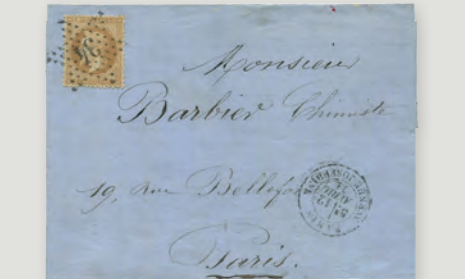 Monsieur
Barbier Chimiste
19, rue Bellefo
Paris.